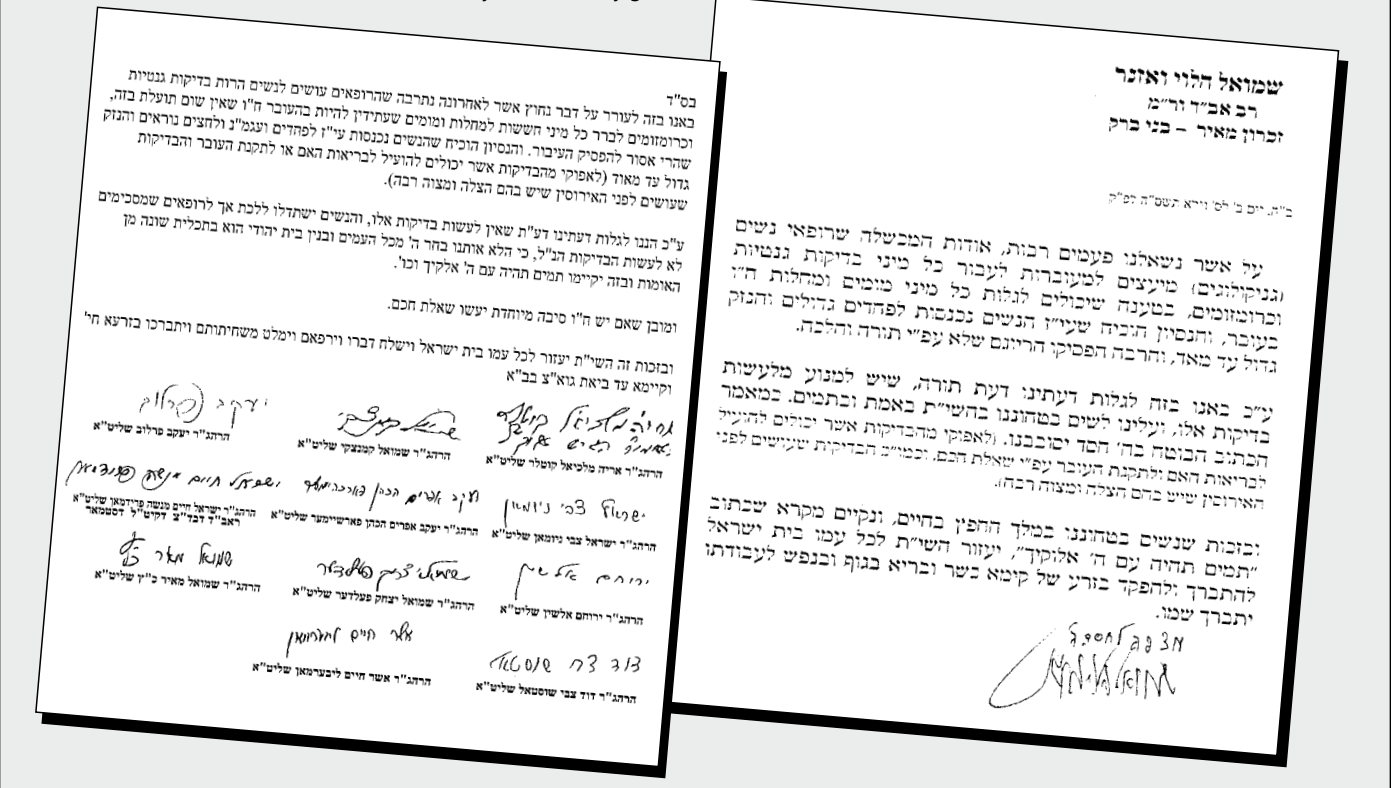 שמואל הלוי ואזנר
רב אב״ד ור״מ
זכרון מאיר – בני ברק
ב״ה, יום ב׳ לס׳ וירא תשס״ה לפ״ק
על אשר נשאלנו פעמים רבות, אודות המכשלה שרופאי נשים
(גניקולוגים) מיעצים למעוברות לעבור כל מיני בדיקות גנטיות
וכרומוזומים, בטענה שיכולים לגלות כל מיני מומים ומחלות ח״ו
בעובר, והנסיון הוכיח שעי״ז הנשים נכנסות לפחדים גדולים והנזק
גדול עד מאד, והרבה הפסיקו הריונם שלא עפ״י תורה והלכה.
ע״כ באנו בזה לגלות דעתינו דעת תורה, שיש למנוע מלעשות
בדיקות אלו, ועלינו לשים בטחוננו בהשי״ת באמת ובתמים. כמאמר
הכתוב הבוטח בה׳ חסד יסובבנו. (לאפוקי מהבדיקות אשר יכולים להועיל
לבריאות האם ולתקנת העובר עפ״י שאלת חכם, וכמו״כ הבדיקות שעושים לפני
האירוסין שיש בהם הצלה ומצוה רבה).
ובזכות שנשים בטחוננו במלך החפץ בחיים, ונקיים מקרא שכתוב
״תמים תהיה עם ה׳ אלוקיך״, יעזור השי״ת לכל עמו בית ישראל
להתברך ולהפקד בזרע של קימא כשר ובריא בגוף ובנפש לעבודתו
יתברך שמו.
מצפה לחסדי ה׳
בס"ד
באנו בזה לעורר על דבר נחוץ אשר לאחרונה נתרבה שהרופאים עושים לנשים הרות בדיקות גנטיות
וכרומוזומים לברר כל מיני חששות למחלות ומומים שעתידין להיות בהעובר ח"ו שאין שום תועלת בזה,
שהרי אסור להפסיק העיבור. והנסיון הוכיח שהנשים נכנסות עי"ז לפחדים ועגמ"נ ולחצים נוראים והנזק
גדול עד מאוד (לאפוקי מהבדיקות אשר יכולים להועיל לבריאות האם או לתקנת העובר והבדיקות
שעושים לפני האירוסין שיש בהם הצלה ומצוה רבה).
ע"כ הננו לגלות דעתינו דע"ת שאין לעשות בדיקות אלו, והנשים ישתדלו ללכת אך לרופאים שמסכימים
לא לעשות הבדיקות הנ"ל, כי הלא אותנו בחר ה' מכל העמים ובנין בית יהודי הוא בתכלית שונה מן
האומות ובזה יקיימו תמים תהיה עם ה' אלקיך וכו'.
ומובן שאם יש ח"ו סיבה מיוחדת יעשו שאלת חכם.
ובזכות זה השי"ת יעזור לכל עמו בית ישראל וישלח דברו וירפאם וימלט משחיתותם ויתברכו בזרעא חי'
וקיימא עד ביאת גוא"צ בב"א
יעקב פרלוב
הרהג"ר אריה מלכיאל קוטלר שליט"א
הרהג"ר שמואל קמנצקי שליט"א
הרהג"ר יעקב פרלוב שליט"א
ישראל צבי ניומאן
יעקב אפרים הכהן פארכהיימער
ישראל חיים מנשה פרידמאן
הרהג"ר ישראל צבי ניומאן שליט"א
הרהג"ר יעקב אפרים הכהן פארשיימער שליט"א
הרהג"ר ישראל חיים מנשה פרידמאן שליט"א
ראב"ד דבד"צ דקיט"ל דסטמאר
ירוחם אלשין
שמואל יצחק פעלדער
שמואל מאיר כ"ץ
הרהג"ר ירוחם אלשין שליט"א
הרהג"ר שמואל יצחק פעלדער שליט"א
הרהג"ר שמואל מאיר כ"ץ שליט"א
דוד צבי שוסטאל
אשר חיים ליבערמאן
הרהג"ר דוד צבי שוסטאל שליט"א
הרהג"ר אשר חיים ליבערמאן שליט"א